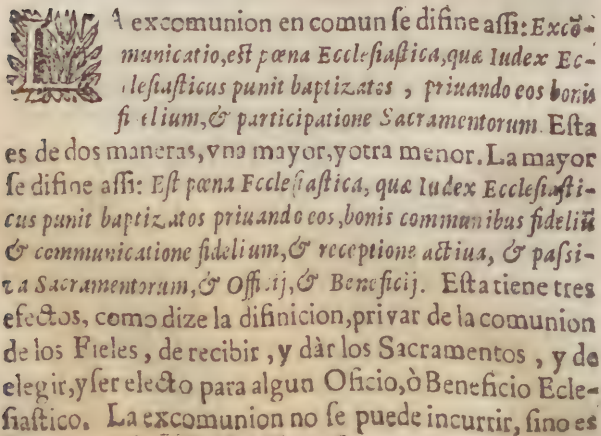 LA excomunion en comun ſe difine aſſi: Excõ-
municatio, eſt pœna Eccleſiaſtica, qua Iudex Ec-
cleſiaſticus punit baptizatos , priuando eos bonis
fidelium, & participatione Sacramentorum. Eſta
es de dos maneras, vna mayor, y otra menor. La mayor
ſe difine aſſi: Eſt pœna Eccleſiaſtica, qua Iudex Eccleſiaſti-
cus punit baptizatos priuando eos, bonis communibus fideliũ
& communicatione fidelium, & receptione actiua, & paſsi-
va Sacramentorum, & Officij, & Beneficij. Eſta tiene tres
efectos, como dize la difinicion, privar de la comunion
de los Fieles , de recibir , y dàr los Sacramentos , y de
elegir, y ſer electo para algun Oficio, ò Beneficio Ecle-
ſiaſtico. La excomunion no ſe puede incurrir, ſino es